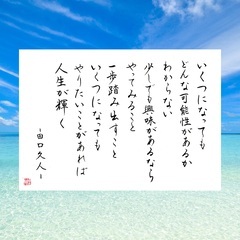 いくつになっても
どんな可能性があるか
わからない
少しでも興味があるなら
やってみること
一歩踏み出すこと
いくつになっても
やりたいことがあれば
人生が輝く
－田口久人－